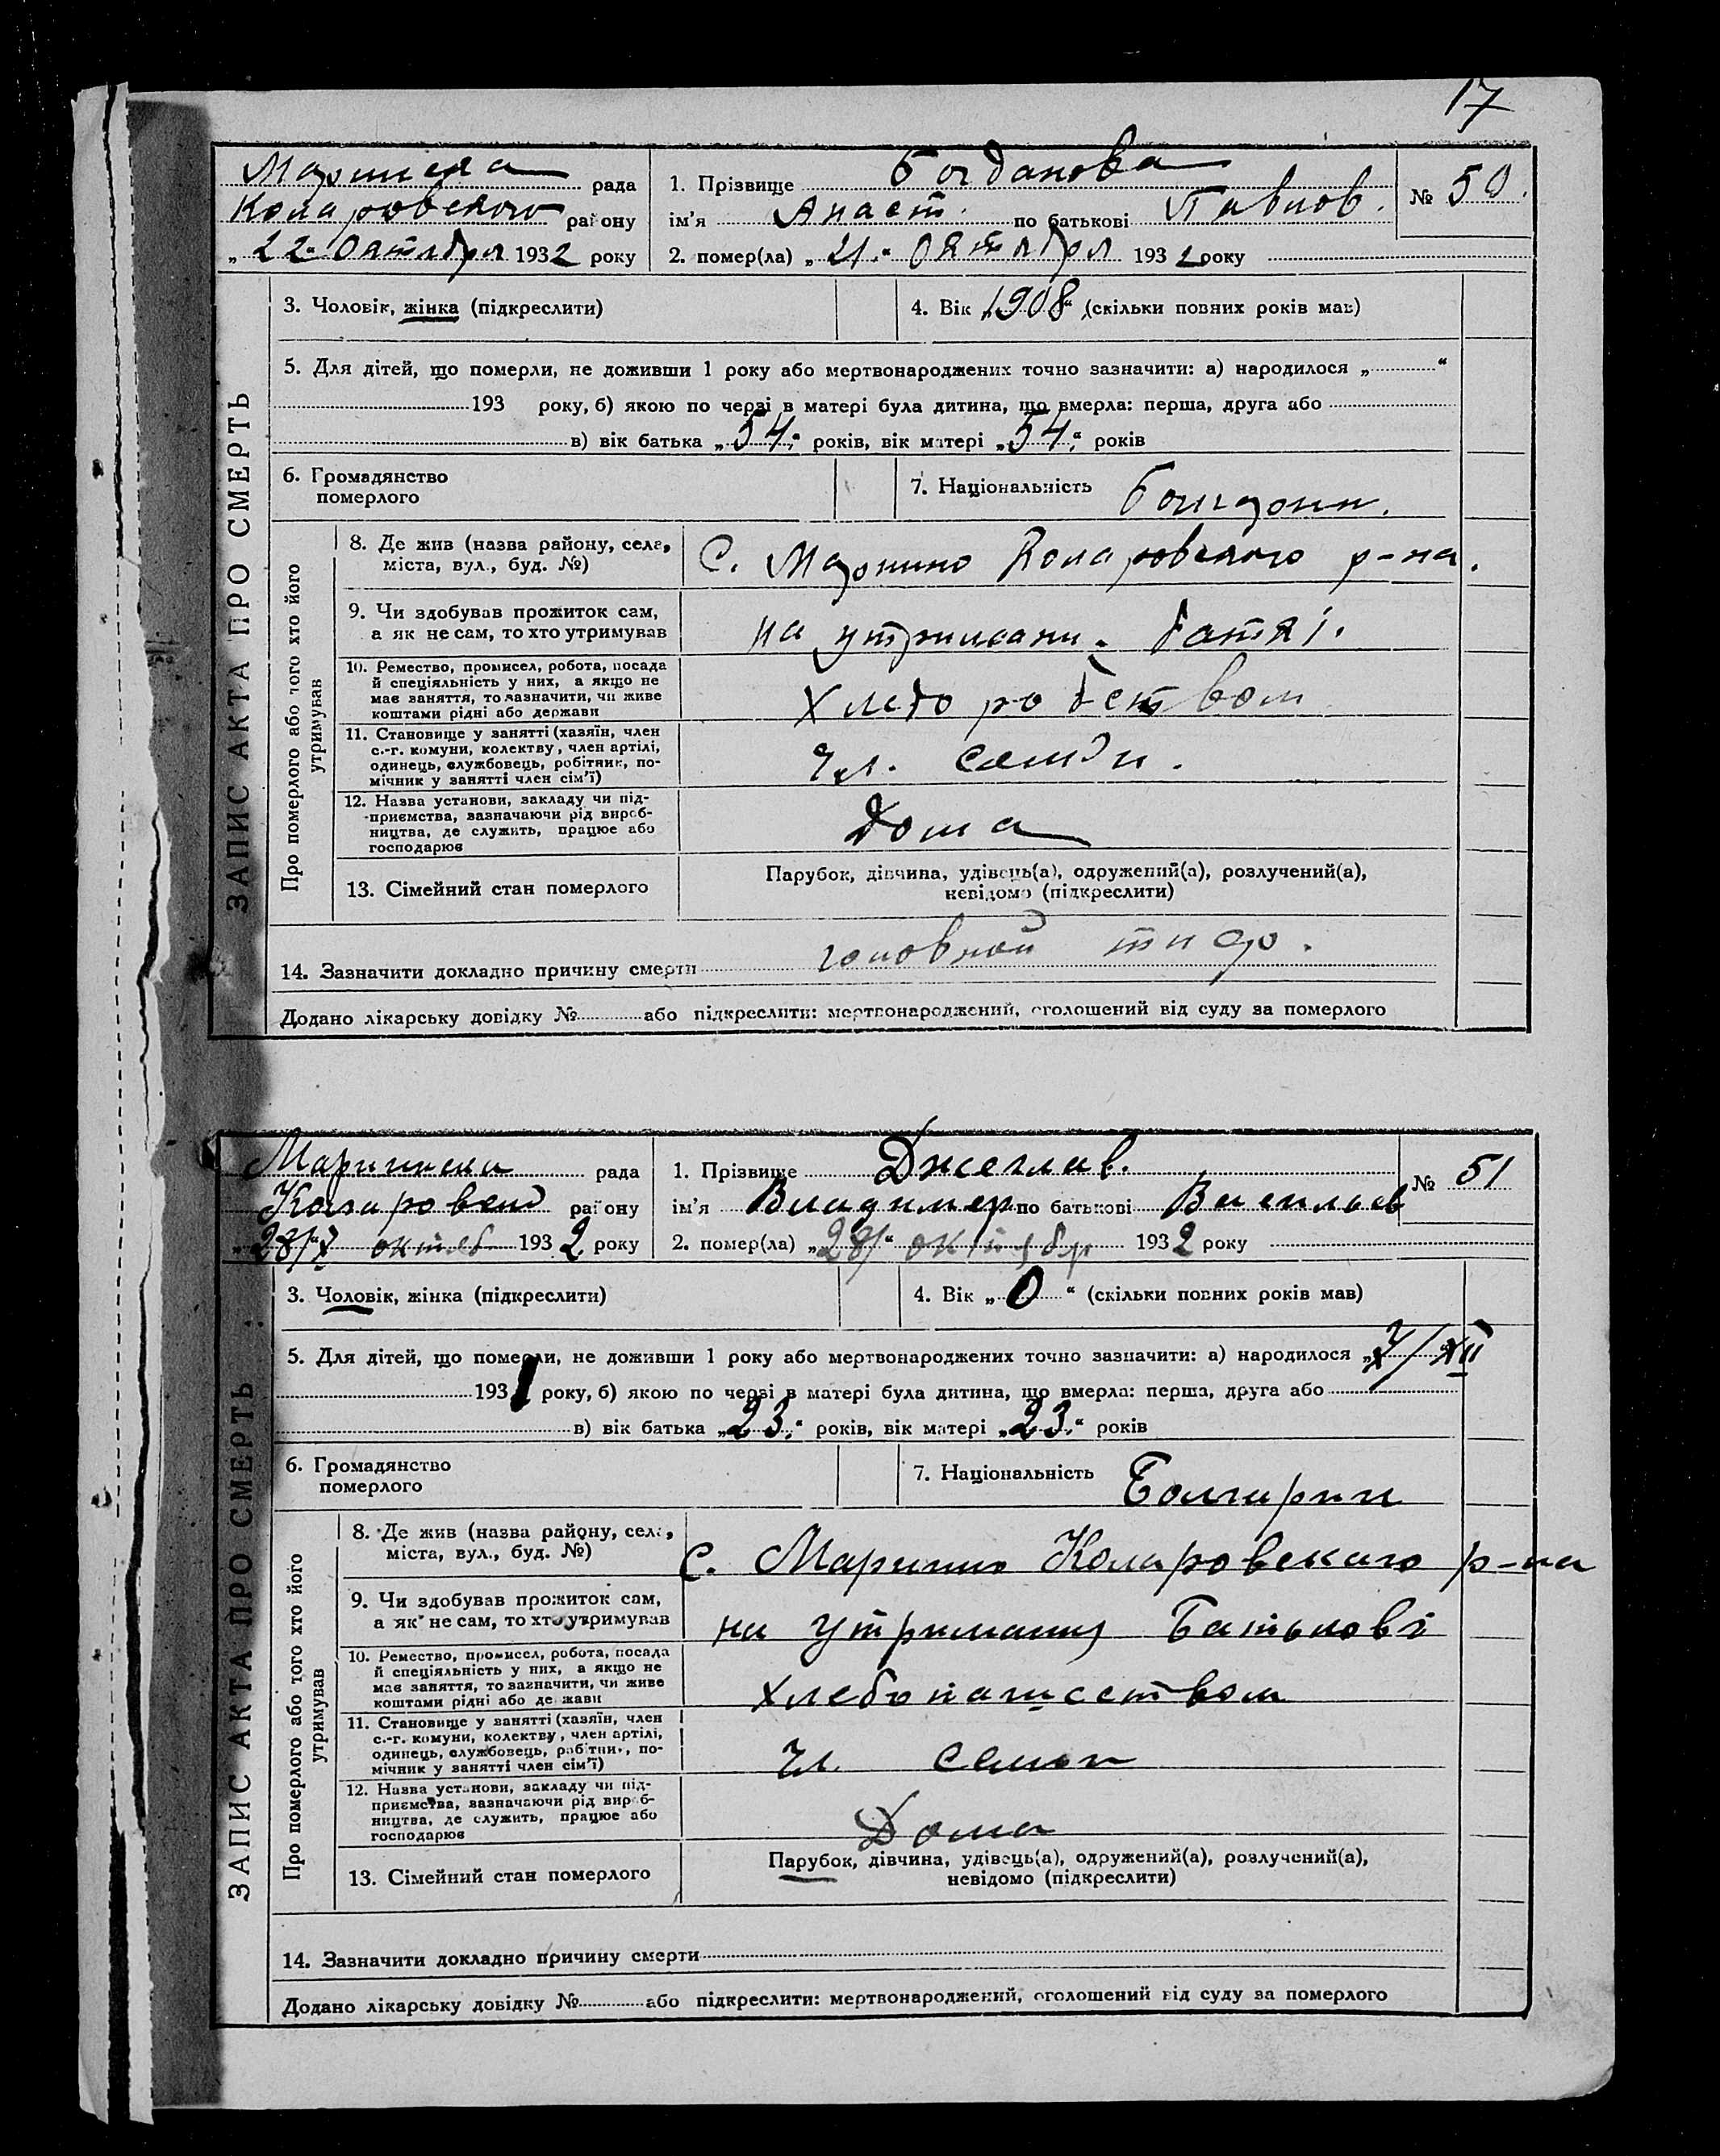 17
ЗАПИС АКТА ПРО СМЕРТЬ
рада
Коларовского району
„22“ Октября 1932 року
1. Прізвище Богданова
ім’я Анаст. по батькові Павлов.
№ 50.
2. помер(ла) „21.“ Октября 1932 року
3. Чоловік, жінка (підкреслити)
4. Вік „1908“ (скільки повних років мав)
5. Для дітей, що померли, не доживши 1 року або мертвонароджених точно зазначити: а) народилося „ “
193 року, б) якою по черзі в матері була дитина, що вмерла: перша, друга або
в) вік батька „54.“ років, вік матері „54.“ років
6. Громадянство
померлого
7. Національність
Про померлого або того хто його
утримував
8. Де жив (назва району, села,
міста, вул., буд. №)
С. Марино Коларовского р-на.
9. Чи здобував прожиток сам,
а як не сам, то хто утримував
на утримани
10. Ремество, промисел, робота, посада
й спеціяльність у них, а якщо не
має заняття, то зазначити, чи живе
коштами рідні або держави
Хлеборобством
11. Становище у занятті (хазяїн, член
с.-г. комуни, колективу, член артілі,
одинець, службовець, робітник, по-
мічник у занятті член сім’ї)
Чл. семьи.
12. Назва установи, закладу чи під-
приємства, зазначаючи рід вироб-
ництва, де служить, працює або
господарює
Дома
13. Сімейний стан померлого
Парубок, дівчина, удівець(а), одружений(а), розлучений(а),
невідомо (підкреслити)
14. Зазначити докладно причину смерти головной тиф.
Додано лікарську довідку № або підкреслити: мертвонароджений, оголошений від суду за померлого
ЗАПИС АКТА ПРО СМЕРТЬ
рада
району
октяб 1932 року
1. Прізвище Джеглав.
ім’я Владимер по батькові Васильев
№ 51
2. помер(ла) октября 1932 року
3. Чоловік, жінка (підкреслити)
4. Вік „0“ (скільки повних років мав)
5. Для дітей, що померли, не доживши 1 року або мертвонароджених точно зазначити: а) народилося „7/XII
1931 року, б) якою по черзі в матері була дитина, що вмерла: перша, друга або
в) вік батька „23.“ років, вік матері „23.“ років
6. Громадянство
померлого
7. Національність Болгарин
Про померлого або того хто його
утримував
8. Де жив (назва району, села,
міста, вул., буд. №)
С. Марино Коларовскаго р-на
9. Чи здобував прожиток сам,
а як не сам, то хто утримував
на утримания Батькові
10. Ремество, промисел, робота, посада
й спеціяльність у них, а якщо не
має заняття, то зазначити, чи живе
коштами рідні або держави
хлебопашеством
11. Становище у занятті (хазяїн, член
с.-г. комуни, колективу, член артілі,
одинець, службовець, робітник, по-
мічник у занятті член сім’ї)
Чл. семьи
12. Назва установи, закладу чи під-
приємства, зазначаючи рід вироб-
ництва, де служить, працює або
господарює
Дома
13. Сімейний стан померлого
Парубок, дівчина, удівець(а), одружений(а), розлучений(а),
невідомо (підкреслити)
14. Зазначити докладно причину смерти
Додано лікарську довідку № або підкреслити: мертвонароджений, оголошений від суду за померлого